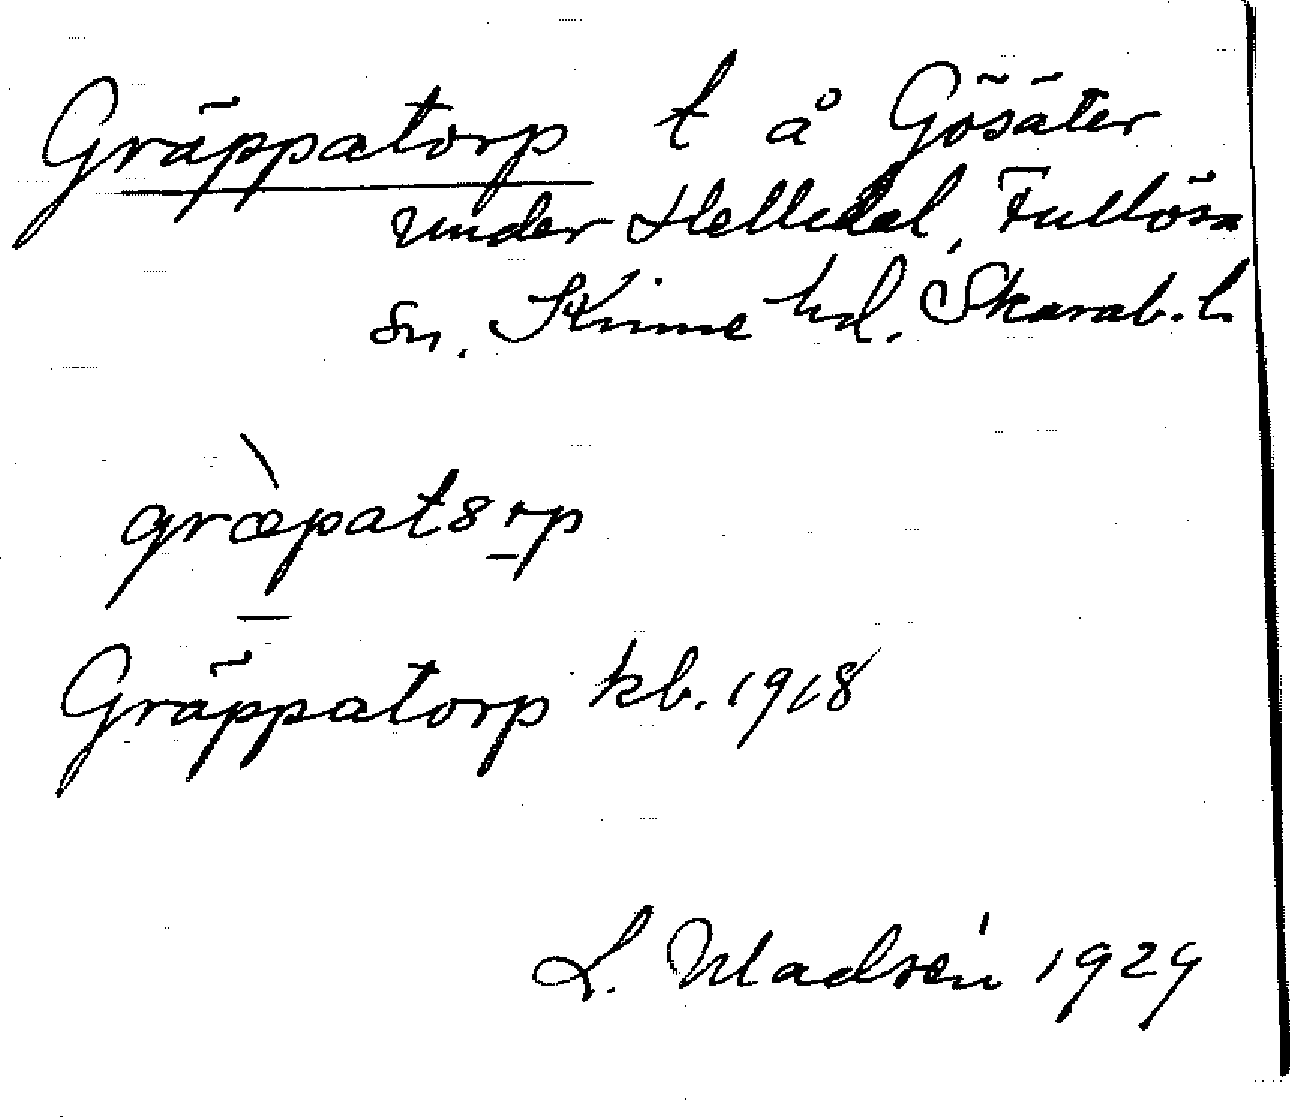 Gräppatorp t å Gösäter
under Helledal, Fullösa
sn. Kinne hd. Skarab. l.
græ̀pat8rp
Gräppatorp kb. 1918
L. Madsén 1929